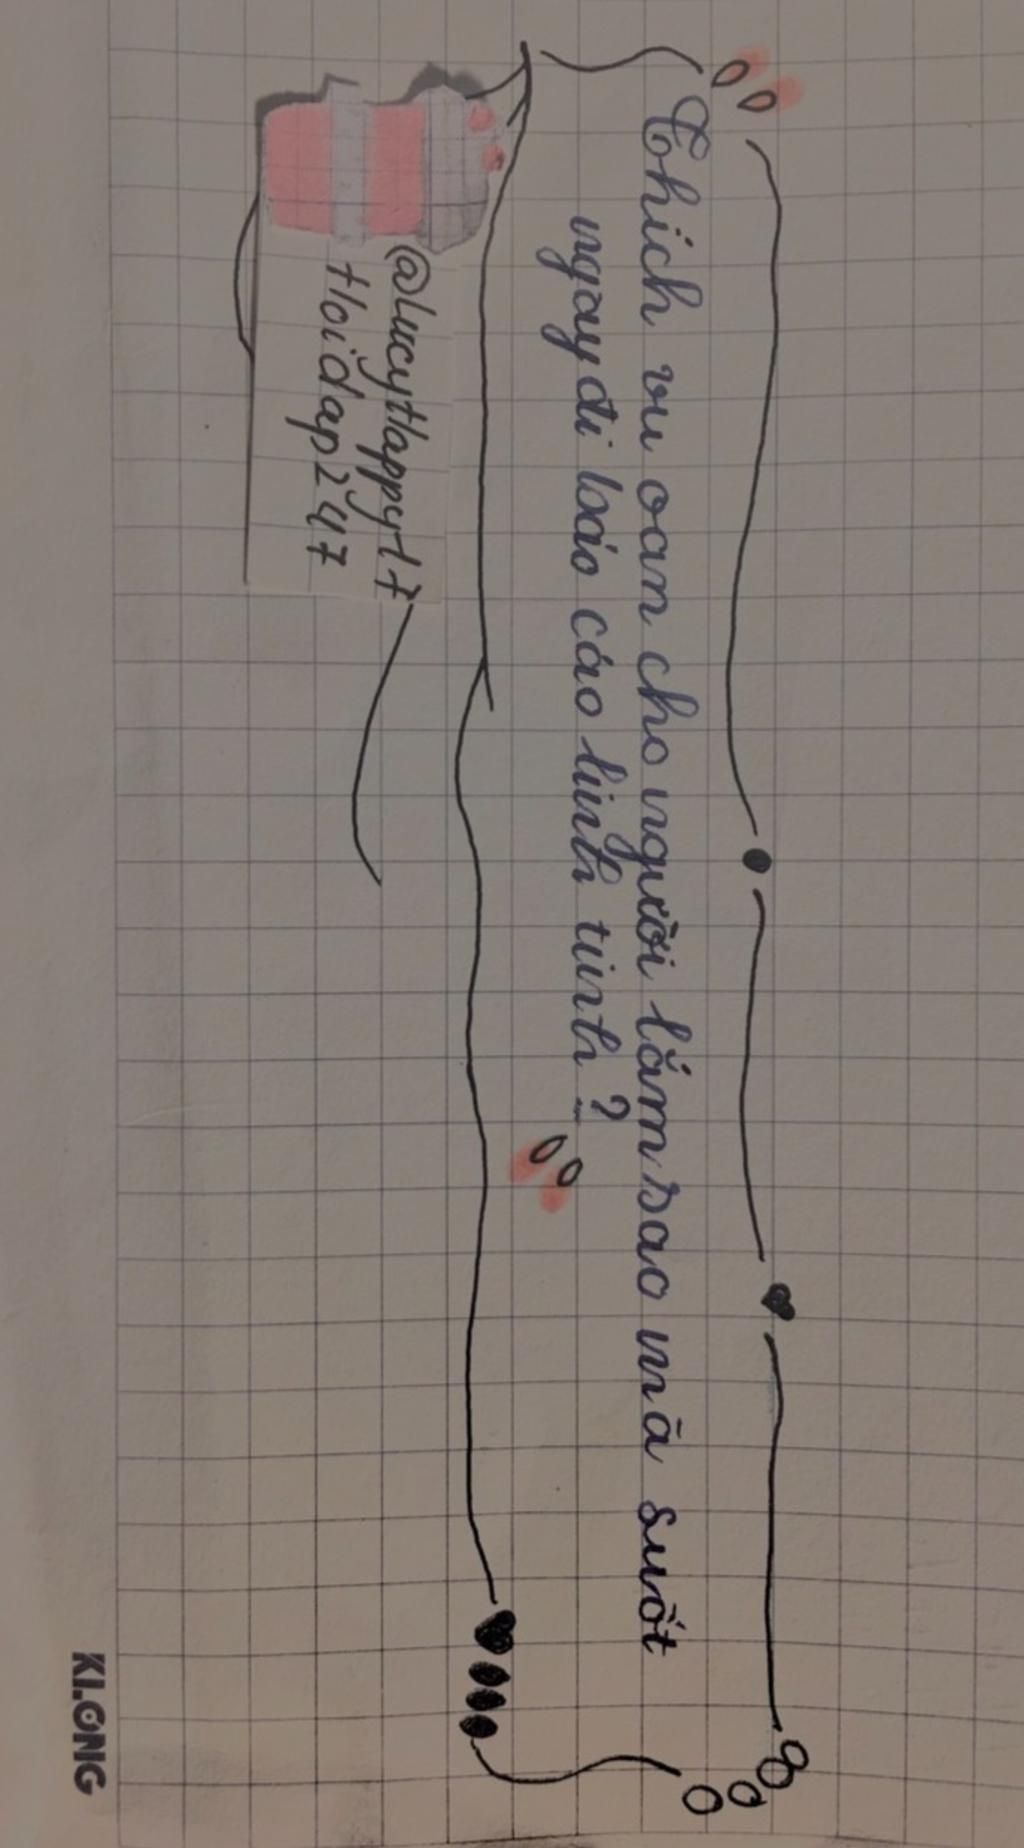 Thích vu oan cho người lắm sao mà suốt
ngày đi báo cáo linh tinh?
@LucyHappy17
Hoidap247
KLONG